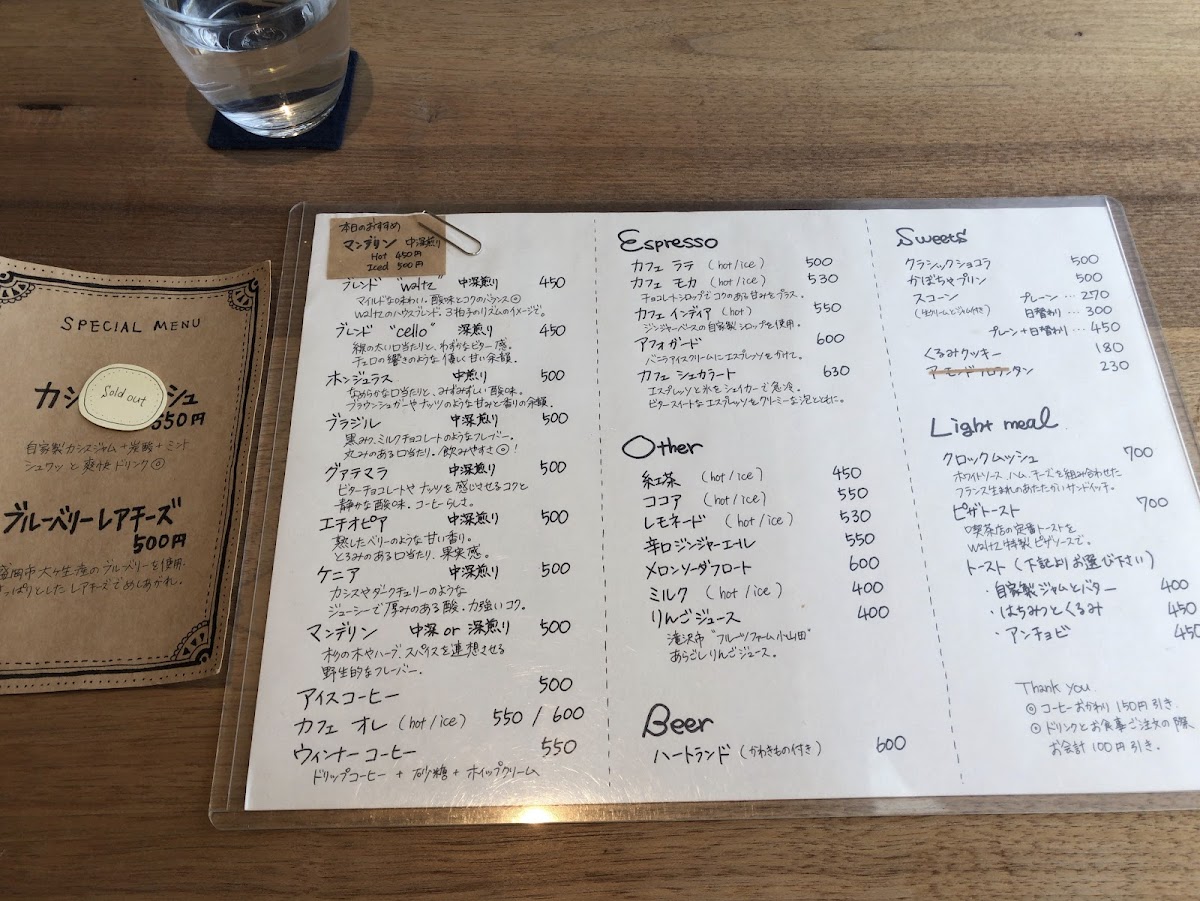 SPECIAL MENU
Sold out
カシ シュ
550円
自家製カシスジャム+炭酸+ミント
シュワッと爽快ドリンク◎
ブルーベリーレアチーズ
500円
盛岡市大ヶ生産のブルーベリーを使用。
さっぱりとしたレアチーズでめしあがれ。
本日のおすすめ
マンデリン 中深煎り
Hot 450円
Iced 500円
ブレンド "waltz" 中深煎り 450
マイルドな味わい。酸味とコクのバランス◎
waltzのハウスブレンド。3拍子のリズムのイメージで。
ブレンド "cello" 深煎り 450
線の太い口当たりと、わずかなビター感。
チェロの響きのような優しく甘い余韻。
ホンジュラス 中煎り 500
なめらかな口当たりと、みずみずしい酸味。
ブラウンシュガーやナッツのような甘みと香りの余韻。
ブラジル 中深煎り 500
黒みつ、ミルクチョコレートのようなフレーバー。
丸みのある口当たり。飲みやすさ◎!
グァテマラ 中深煎り 500
ビターチョコレートやナッツを感じさせるコクと
静かな酸味。コーヒーらしさ。
エチオピア 中深煎り 500
熟したベリーのような甘い香り。
とろみのある口当たり、果実感。
ケニア 中深煎り 500
カシスやダークチェリーのような
ジューシーで厚みのある酸、力強いコク。
マンデリン 中深 or 深煎り 500
杉の木やハーブ、スパイスを連想させる
野生的なフレーバー。
アイスコーヒー 500
カフェ オレ (hot/ice) 550 / 600
ウィンナーコーヒー 550
ドリップコーヒー + 砂糖 + ホイップクリーム
Espresso
カフェ ラテ (hot/ice) 500
カフェ モカ (hot/ice) 530
チョコレートシロップでコクのある甘みをプラス。
カフェ インディア (hot) 550
ジンジャーベースの自家製シロップを使用。
アフォガード 600
バニラアイスクリームにエスプレッソをかけて。
カフェ シュカラート 630
エスプレッソと氷をシェイカーで急冷。
ビタースイートなエスプレッソをクリーミーな泡とともに。
Other
紅茶 (hot/ice) 450
ココア (hot/ice) 550
レモネード (hot/ice) 530
辛口ジンジャーエール 550
メロンソーダフロート 600
ミルク (hot/ice) 400
りんごジュース 400
滝沢市 "フルーツファーム小山田"
あらごしりんごジュース。
Beer
ハートランド (かわきもの付き) 600
Sweets
クラシックショコラ 500
かぼちゃプリン 500
スコーン プレーン … 270
(生クリームとジャム付き) 日替わり … 300
プレーン+日替わり … 450
くるみクッキー 180
アーモンドフロランタン 230
Light meal
クロックムッシュ 700
ホワイトソース、ハム、チーズを組み合わせた
フランス生まれのあたたかいサンドイッチ。
ピザトースト 700
喫茶店の定番トーストを
waltz特製ピザソースで。
トースト (下記よりお選び下さい)
・自家製ジャムとバター 400
・はちみつとくるみ 450
・アンチョビ 450
Thank you
◎コーヒーおかわり 150円引き.
◎ドリンクとお食事ご注文の際、
お会計100円引き.